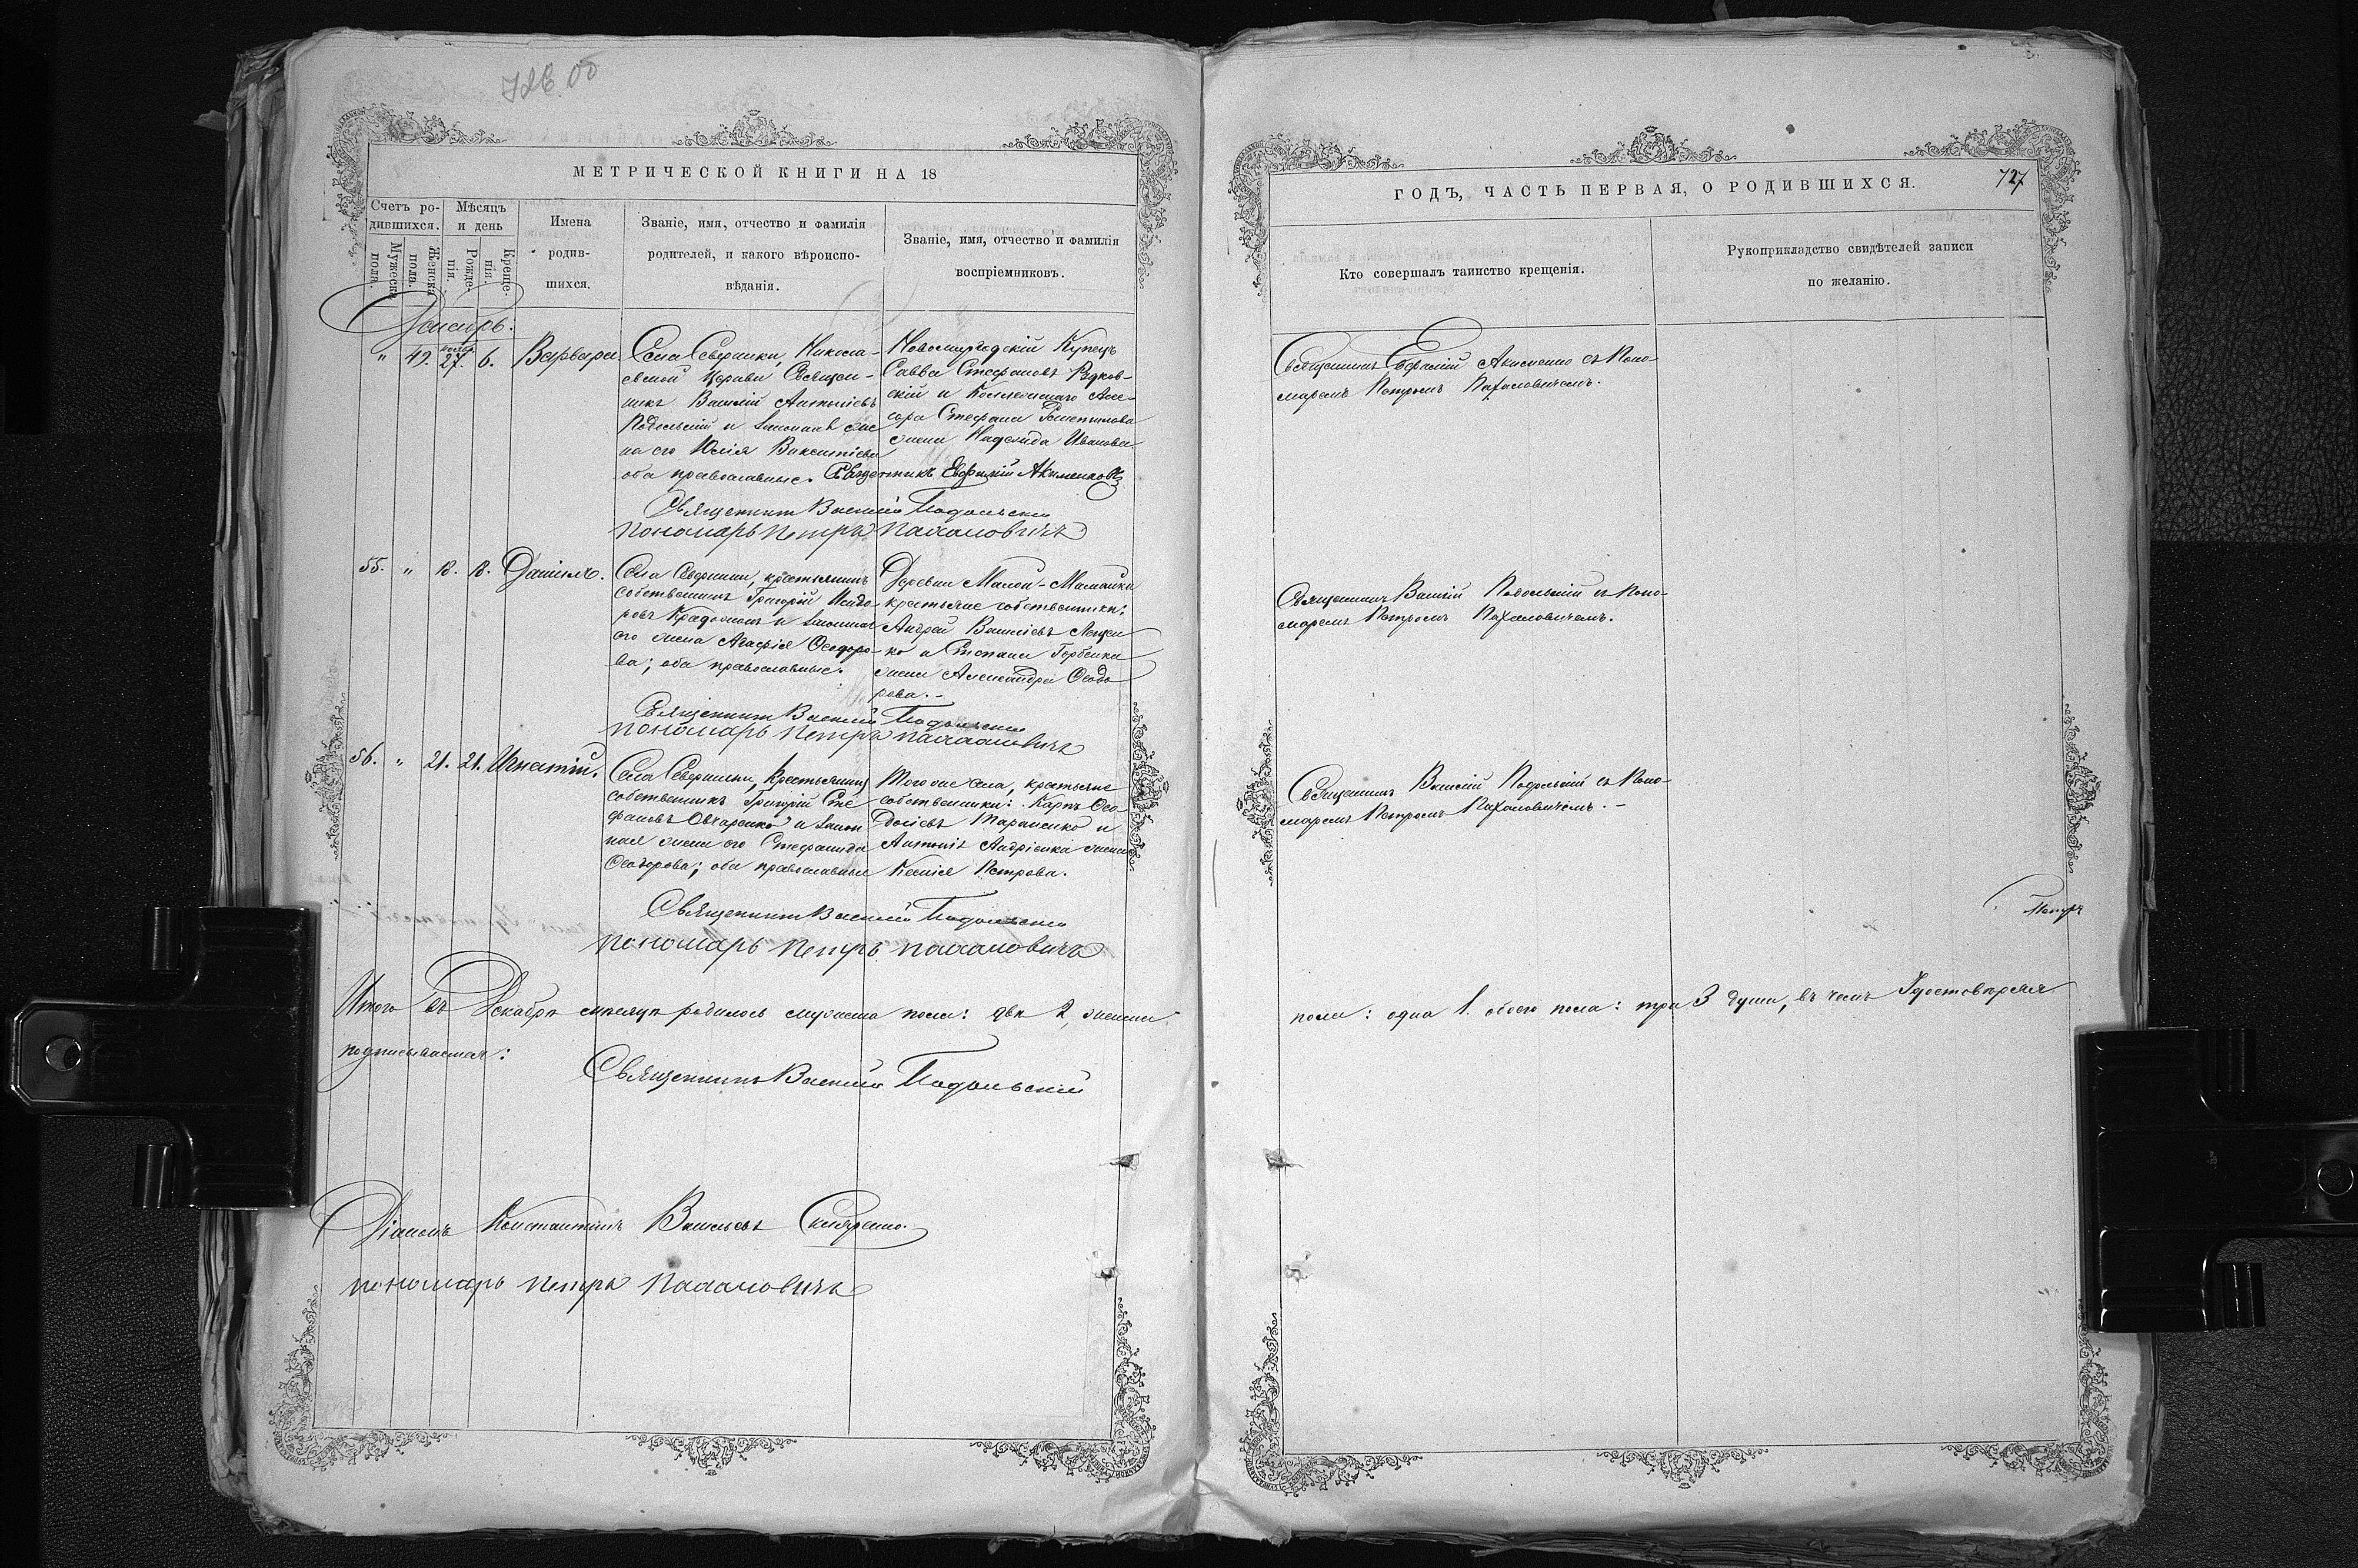 726 об
МЕТРИЧЕСКОЙ КНИГИ НА 18
Счетъ ро-
дившихся.
Мѣсяцъ
и день
Мужеска
полa.
Женска
полa.
Рожде-
нія.
Креще-
нія.
Имена
родив-
шихся.
Званіе, имя, отчество и фамилія
родителей, и какого вѣроиспо-
вѣданія.
Званіе, имя, отчество и фамилія
воспріемниковъ.
Декабрь.
" 49. нояб. 27. 6. Варвара
Села Северинки, Никола-
евской Церкви Священ-
никъ Василій Антоніевъ
Подольскій и законная же
на его Юлія Викентіева
оба православные.
Новомиргодскій Купецъ
Савва Стефановъ
скій и Коллежскаго Асе-
сора Стефана
жена Надежда Иванова
Священникъ Евфимій Акименковъ
Священникъ Василій Подольскій
пономарь Петръ Пахаловичъ
55. " 18. 18. Даніилъ.
Села Северинки, крестьянинъ
собственникъ Григорій Исидо-
ровъ и законная
его жена Агафія Ѳеодоро-
ва; оба православные.
Деревни Малой-Мамайки
крестьяне собственники:
Андрей Василіевъ Лещен
ко и Степана Гербенка
жена Александра Ѳеодо
рова.-
Священникъ Василій Подольскій
пономарь Петръ Пахаловичъ
56. " 21. 21. Игнатій.
Села Северинки, Крестьянинъ
собственникъ Григорій Сте
фановъ Овчаренко и закон
ная жена его Стефанида
Ѳеодорова; оба православные
Того же села, крестьяне
собственники: Карпъ Ѳео-
досіевъ Тараненко и
Антонія Андріенка жена
Ксенія Петрова.
Священникъ Василій Подольскій
пономарь Петръ Пахаловичъ
Итого въ Декабрѣ мѣсяцѣ родилось мужеска пола: два 2, женска
подписываемся:
Священникъ Василій Подольскій
Діаконъ Константинъ Васильевъ Скляренко.
пономарь Петръ Пахаловичъ
ГОДЪ, ЧАСТЬ ПЕРВАЯ, О РОДИВШИХСЯ.
727
Кто совершалъ таинство крещенія.
Рукоприкладство свидѣтелей записи
по желанію.
Священникъ Евфимій Акименко съ Поно-
маремъ Петромъ Пахаловичемъ.
Священникъ Василій Подольскій съ Поно-
маремъ Петромъ Пахаловичемъ.
Священникъ Василій Подольскій съ Поно-
маремъ Петромъ Пахаловичемъ. -
пола: одна 1. обоего пола: три 3 души, въ чемъ Удостовѣряя